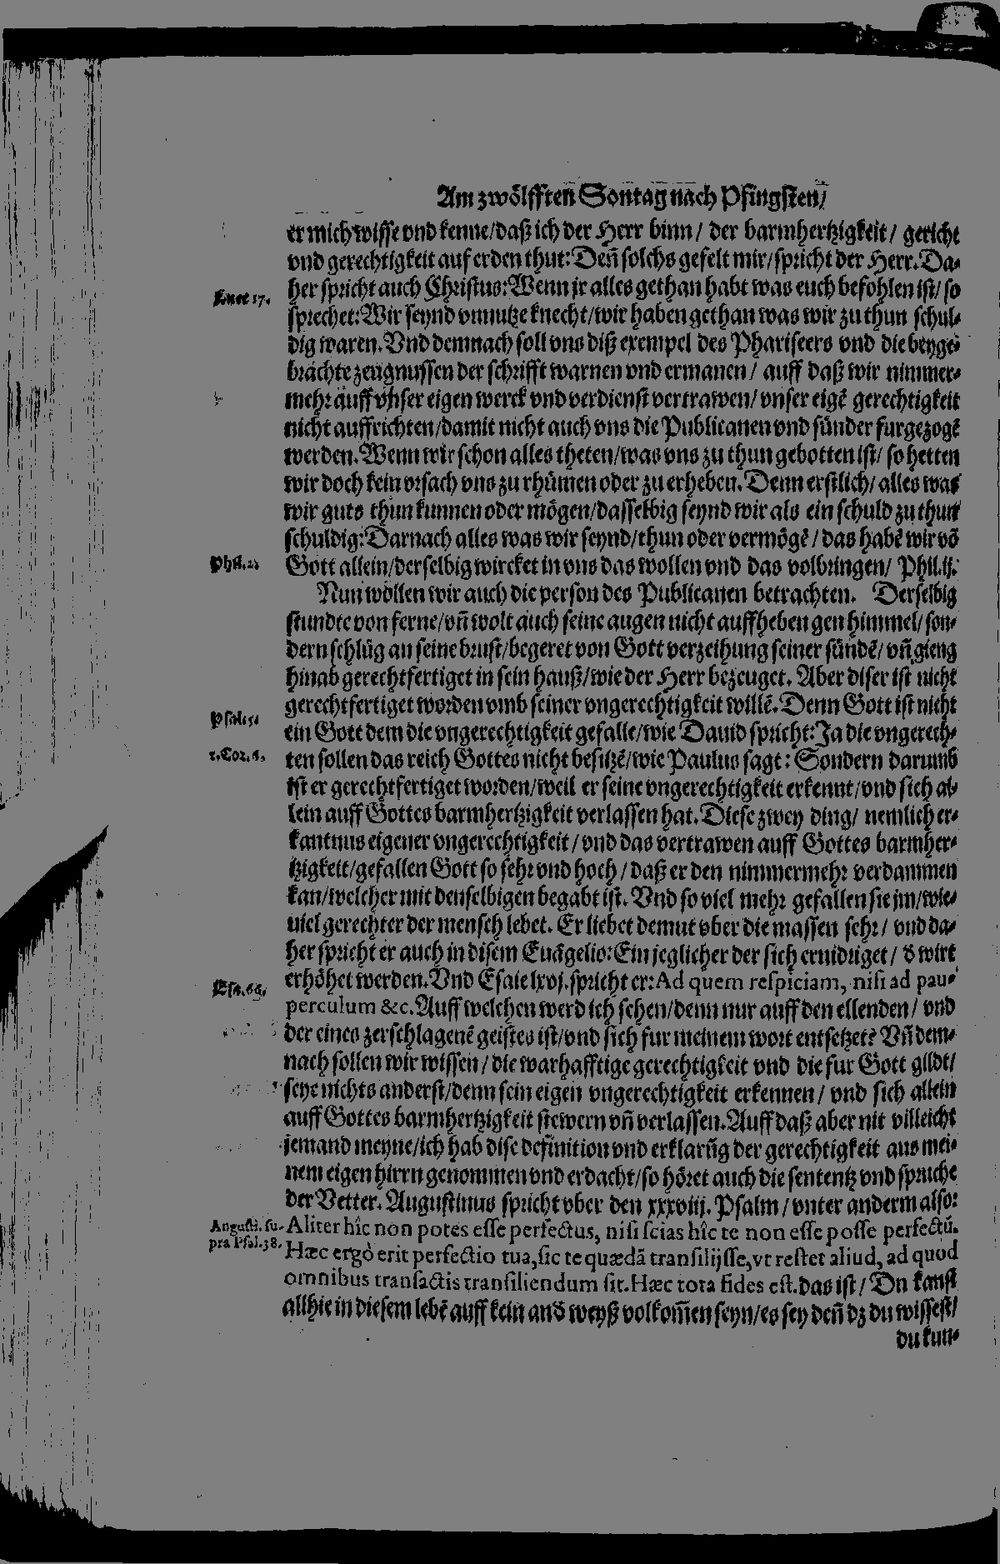 Am zwölfften Sontag nach Pfingsten/
er mich wisse vnd kenne/daß ich der Herr binn/ der barmhertzigkeit/ gericht
vnd gerechtigkeit auf erden thut: Deñ solchs gefelt mir/spricht der Herr. Da-
Luce 17.
her spricht auch Christus: Wenn jr alles gethan habt was euch befohlen ist/ so
sprechet: Wir seynd vnnutze knecht/wir haben gethan was wir zu thun schul-
dig waren. Vnd demnach soll vns diß exempel des Phariseers vnd die beyge-
brachte zeugnussen der schrifft warnen vnd ermanen/ auff daß wir nimmer-
mehr auff vnser eigen werck vnd verdienst vertrawen/ vnser eigē gerechtigkeit
nicht auffrichten/damit nicht auch vns die Publicanen vnd sünder furgezogē
werden. Wenn wir schon alles theten/was vns zu thun gebotten ist/ so hetten
wir doch kein vrsach vns zu rhümen oder zu erheben. Denn erstlich/ alles was
wir guts thun kunnen oder mögen/dasselbig seynd wir als ein schuld zu thun
schuldig: Darnach alles was wir seynd/thun oder vermögē/das habē wir vō
Phil. 2.
Gott allein/derselbig wircket in vns das wollen vnd das volbringen/ Phil. ij.
Nun wöllen wir auch die person des Publicanen betrachten. Derselbig
stundte von ferne/vñ wolt auch seine augen nicht auffheben gen himmel/ son-
dern schlüg an seine brust/begeret von Gott verzeihung seiner sündē/ vñ gieng
hinab gerechtfertiget in sein hauß/wie der Herr bezeuget. Aber diser ist nicht
gerechtfertiget worden vmb seiner vngerechtigkeit willē. Denn Gott ist nicht
Psal. 5.
ein Gott dem die vngerechtigkeit gefalle/wie Dauid spricht: Ja die vngerech-
1. Cor. 6.
ten sollen das reich Gottes nicht besitzē/wie Paulus sagt: Sondern darumb
ist er gerechtfertiget worden/weil er seine vngerechtigkeit erkennt/vnd sich al-
lein auff Gottes barmhertzigkeit verlassen hat. Diese zwey ding/ nemlich er-
kantnus eigener vngerechtigkeit/vnd das vertrawen auff Gottes barmher-
tzigkeit/gefallen Gott so sehr vnd hoch/daß er den nimmermehr verdammen
kan/welcher mit denselbigen begabt ist. Vnd so viel mehr gefallen sie jm/wie-
uiel gerechter der mensch lebet. Er liebet demut vber die massen sehr/ vnd da-
her spricht er auch in disem Euāgelio: Ein jeglicher der sich ernidriget/ d̄ wirt
Esa. 66.
erhöhet werden. Vnd Esaie lxvj. spricht er: Ad quem respiciam, nisi ad pau-
perculum &c. Auff welchen werd ich sehen/denn nur auff den ellenden/ vnd
der eines zerschlagenē geistes ist/vnd sich fur meinem wort entsetzet? Vñ dem-
nach sollen wir wissen/die warhafftige gerechtigkeit vnd die fur Gott gildt/
seye nichts anderst/denn sein eigen vngerechtigkeit erkennen/ vnd sich allein
auff Gottes barmhertzigkeit stewern vñ verlassen. Auff daß aber nit villeicht
jemand meyne/ich hab dise definition vnd erklarūg der gerechtigkeit aus mei-
nem eigen hirrn genommen vnd erdacht/so höret auch die sententz vnd spruche
der Vetter. Augustinus spricht vber den xxxviij. Psalm/vnter anderm also:
Augusti. su-
pra Psal. 38.
Aliter hîc non potes esse perfectus, nisi scias hîc te non esse posse perfectū.
Hæc ergò erit perfectio tua, sic te quædā transilijsse, vt restet aliud, ad quod
omnibus transactis transiliendum sit. Hæc tota fides est. das ist/ Du kanst
allhie in diesem lebē auff kein and̄ weyß volkom̄en seyn/es sey deñ dz du wissest/
du kun-